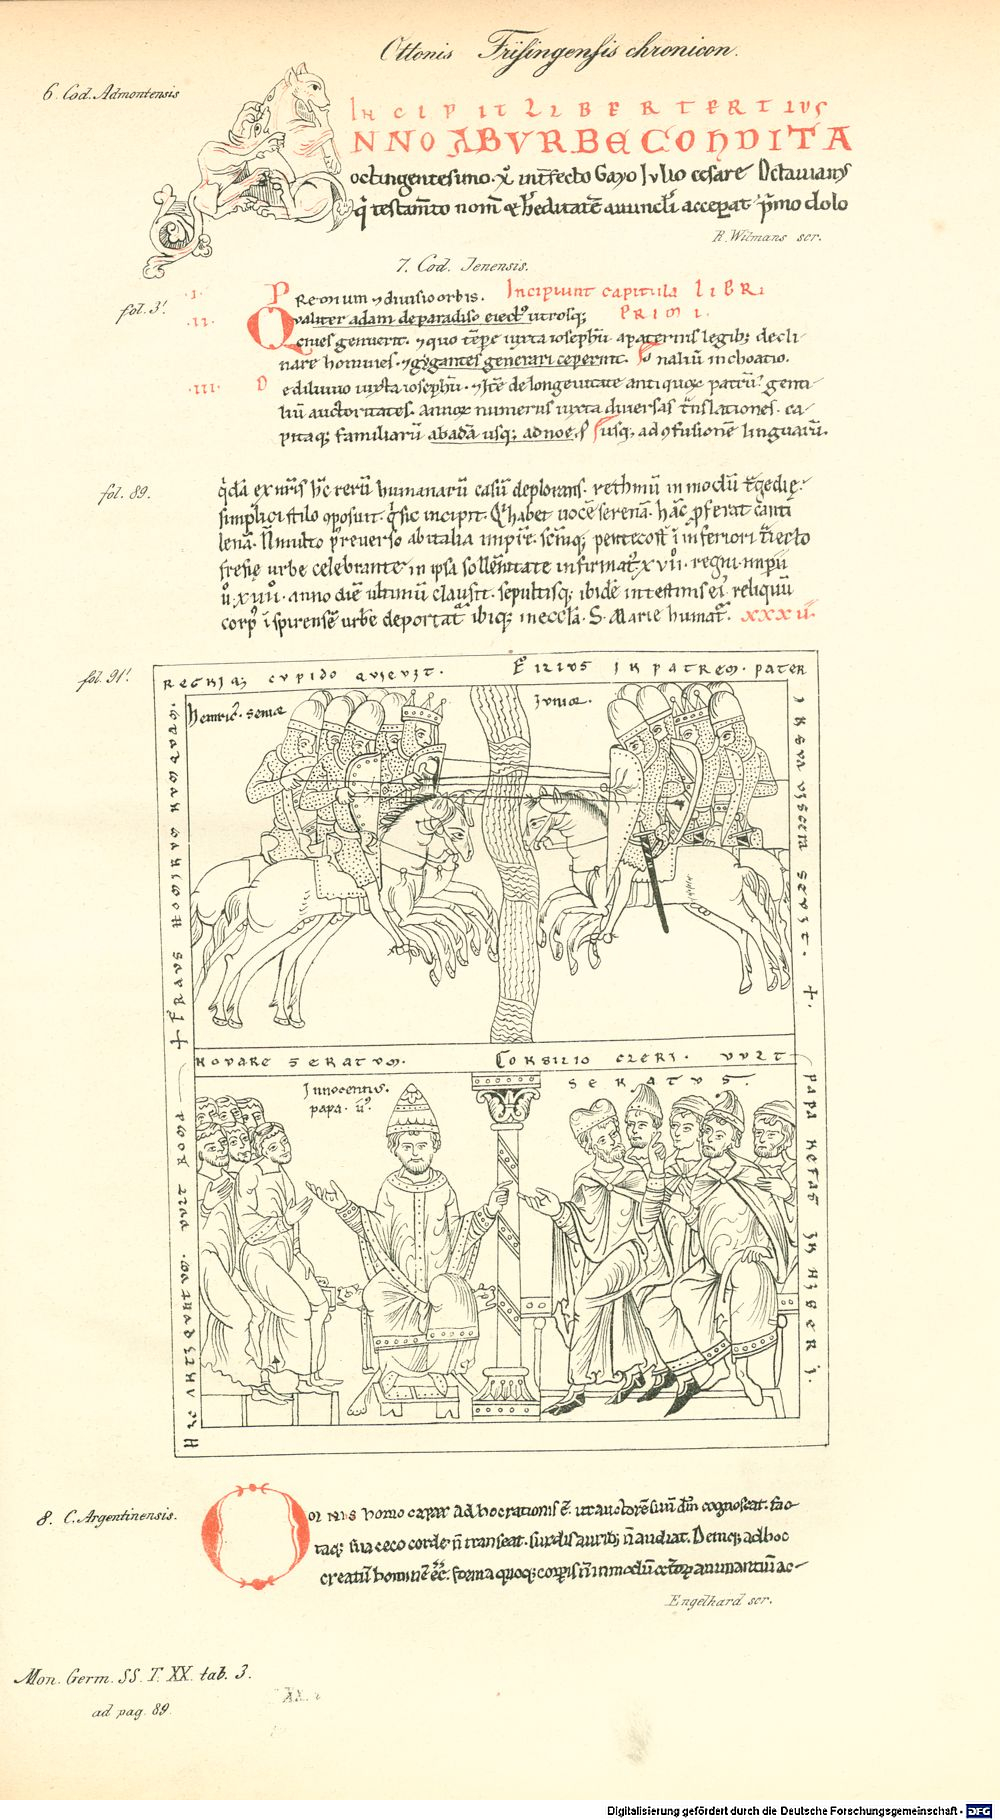 Ottonis Frisingensis chronicon.
6. Cod. Admontensis
INCIPIT LIBER TERTIUS
NNO AB VRBE CONDITA
octingentesimo. int̄fecto Gayo Iulio cesare Octauianꝰ
testam̄to nom̄ & h̄editatē auuncl̓i acceperat p̓mo dolo
R. Wilmans scr.
7. Cod. Jenensis.
fol. 3'.
.I. Premium ⁊ diuisio orbis. Incipiunt capitula LIBRI
.II. Qualiter adam de paradiso eiect᾽ utrosq; PRIMI.
ciues genuerit. ⁊ quo tēpe iuxta iosephū a paternis legib; decli-
nare homines. ⁊ gygantes generari ceperint. naliū inchoatio.
.III. De diluuio iuxta iosephū. ⁊ Itē de longeuitate antiquoꝝ patrū. genti-
liū auctoritates. annoꝝ numerus iuxta diuersas t̄nslationes. ca-
pitaq; familiarū ab adā usq; ad noe. usq; ad ꝯfusionē linguarū.
fol. 89.
q̓dā ex nr̄is h̓c rerū humanarū casū deplorans. rethmū in modū t̓gedię.
simplici stilo ꝯposuit. q̓ sic incipit. Q̓ habet uocē serenā. hāc p̓ferat cānti
lenā. N̄ multo p᾽ reuerso ab italia imp̄re. sc̄mq; pentecost̄ ī inferiori t̓iecto
fresię urbe celebrante in ipsa sollēnitate infirmat᾽ xvii. regni. imp̄ii
ũ. xiiii. anno diē ultimū clausit. sepultisq; ibidē intestinis ei᾽ reliquū
corp᾽ ī spirensē urbē deportat̄ ibiq; in eccl̄a. S. Marie humat̄. xxxii.
fol. 91'.
REGNIQ; CVPIDO QVIEVIT. FILIVS IN PATREM. PATER
IN SVA VISCERA SEVIT.
+ FRAVS HOMINVM NVMQVAM.
Heinric᾽. senior
iunior.
NOVARE SENATVM. CONSILIO CLERI. VVLT
SENATVS.
Innocentius.
papa. ii᾽.
+. PAPA NEFAS INHIBERI.
HIC ANTIQVVM. VVLT ROMA
8. C. Argentinensis.
Omnis homo capax ad hoc rationis ē. ut auctorē suū dm̄ cognoscat. fac-
taq; sua ceco corde n̄ transeat. surdis auribꝰ n̄ audiat. Deniq; ad hoc
creatū hominē ēē. forma quoq; corpis n̄ in modū cet̓oꝝ animantiū ac-
Engelhard scr.
Mon. Germ. SS. T. XX. tab. 3.
ad pag. 89.
Digitalisierung gefördert durch die Deutsche Forschungsgemeinschaft - DFG